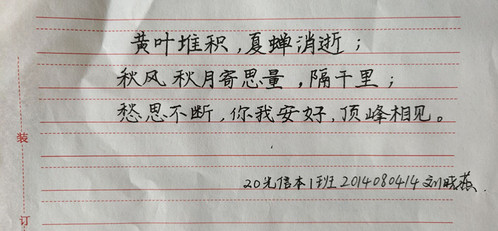 黄叶堆积，夏蝉消逝；
秋风秋月寄思量，隔千里；
愁思不断，你我安好，顶峰相见。
装
20光信本1班 2014080414 刘晓薇
订